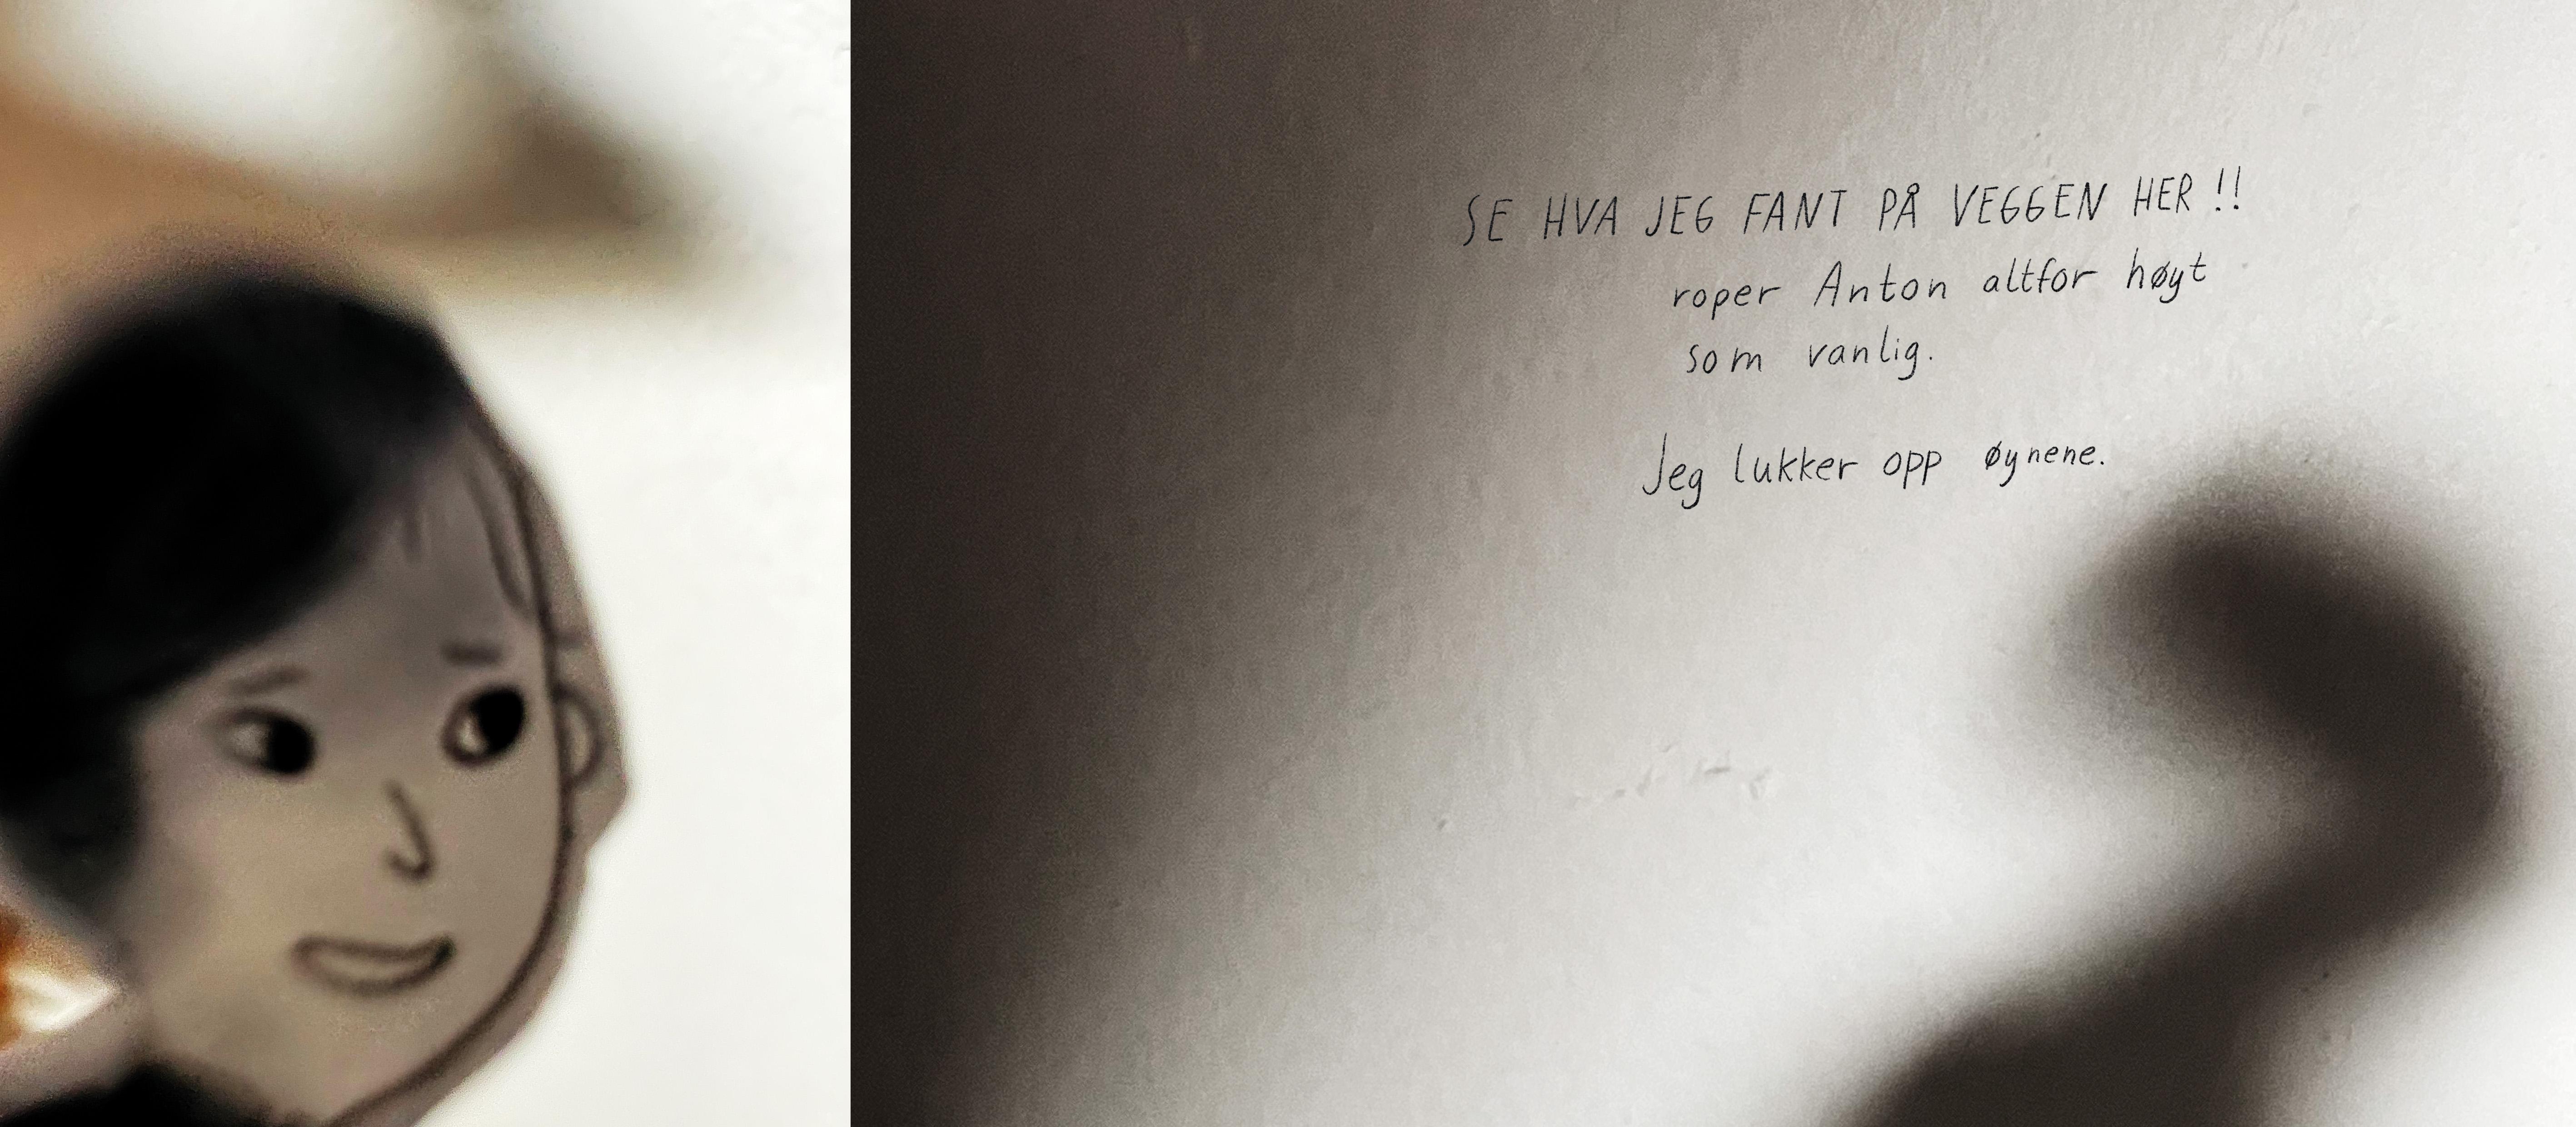 SE HVA JEG FANT PÅ VEGGEN HER!!
roper Anton altfor høyt
som vanlig.
Jeg lukker opp øynene.